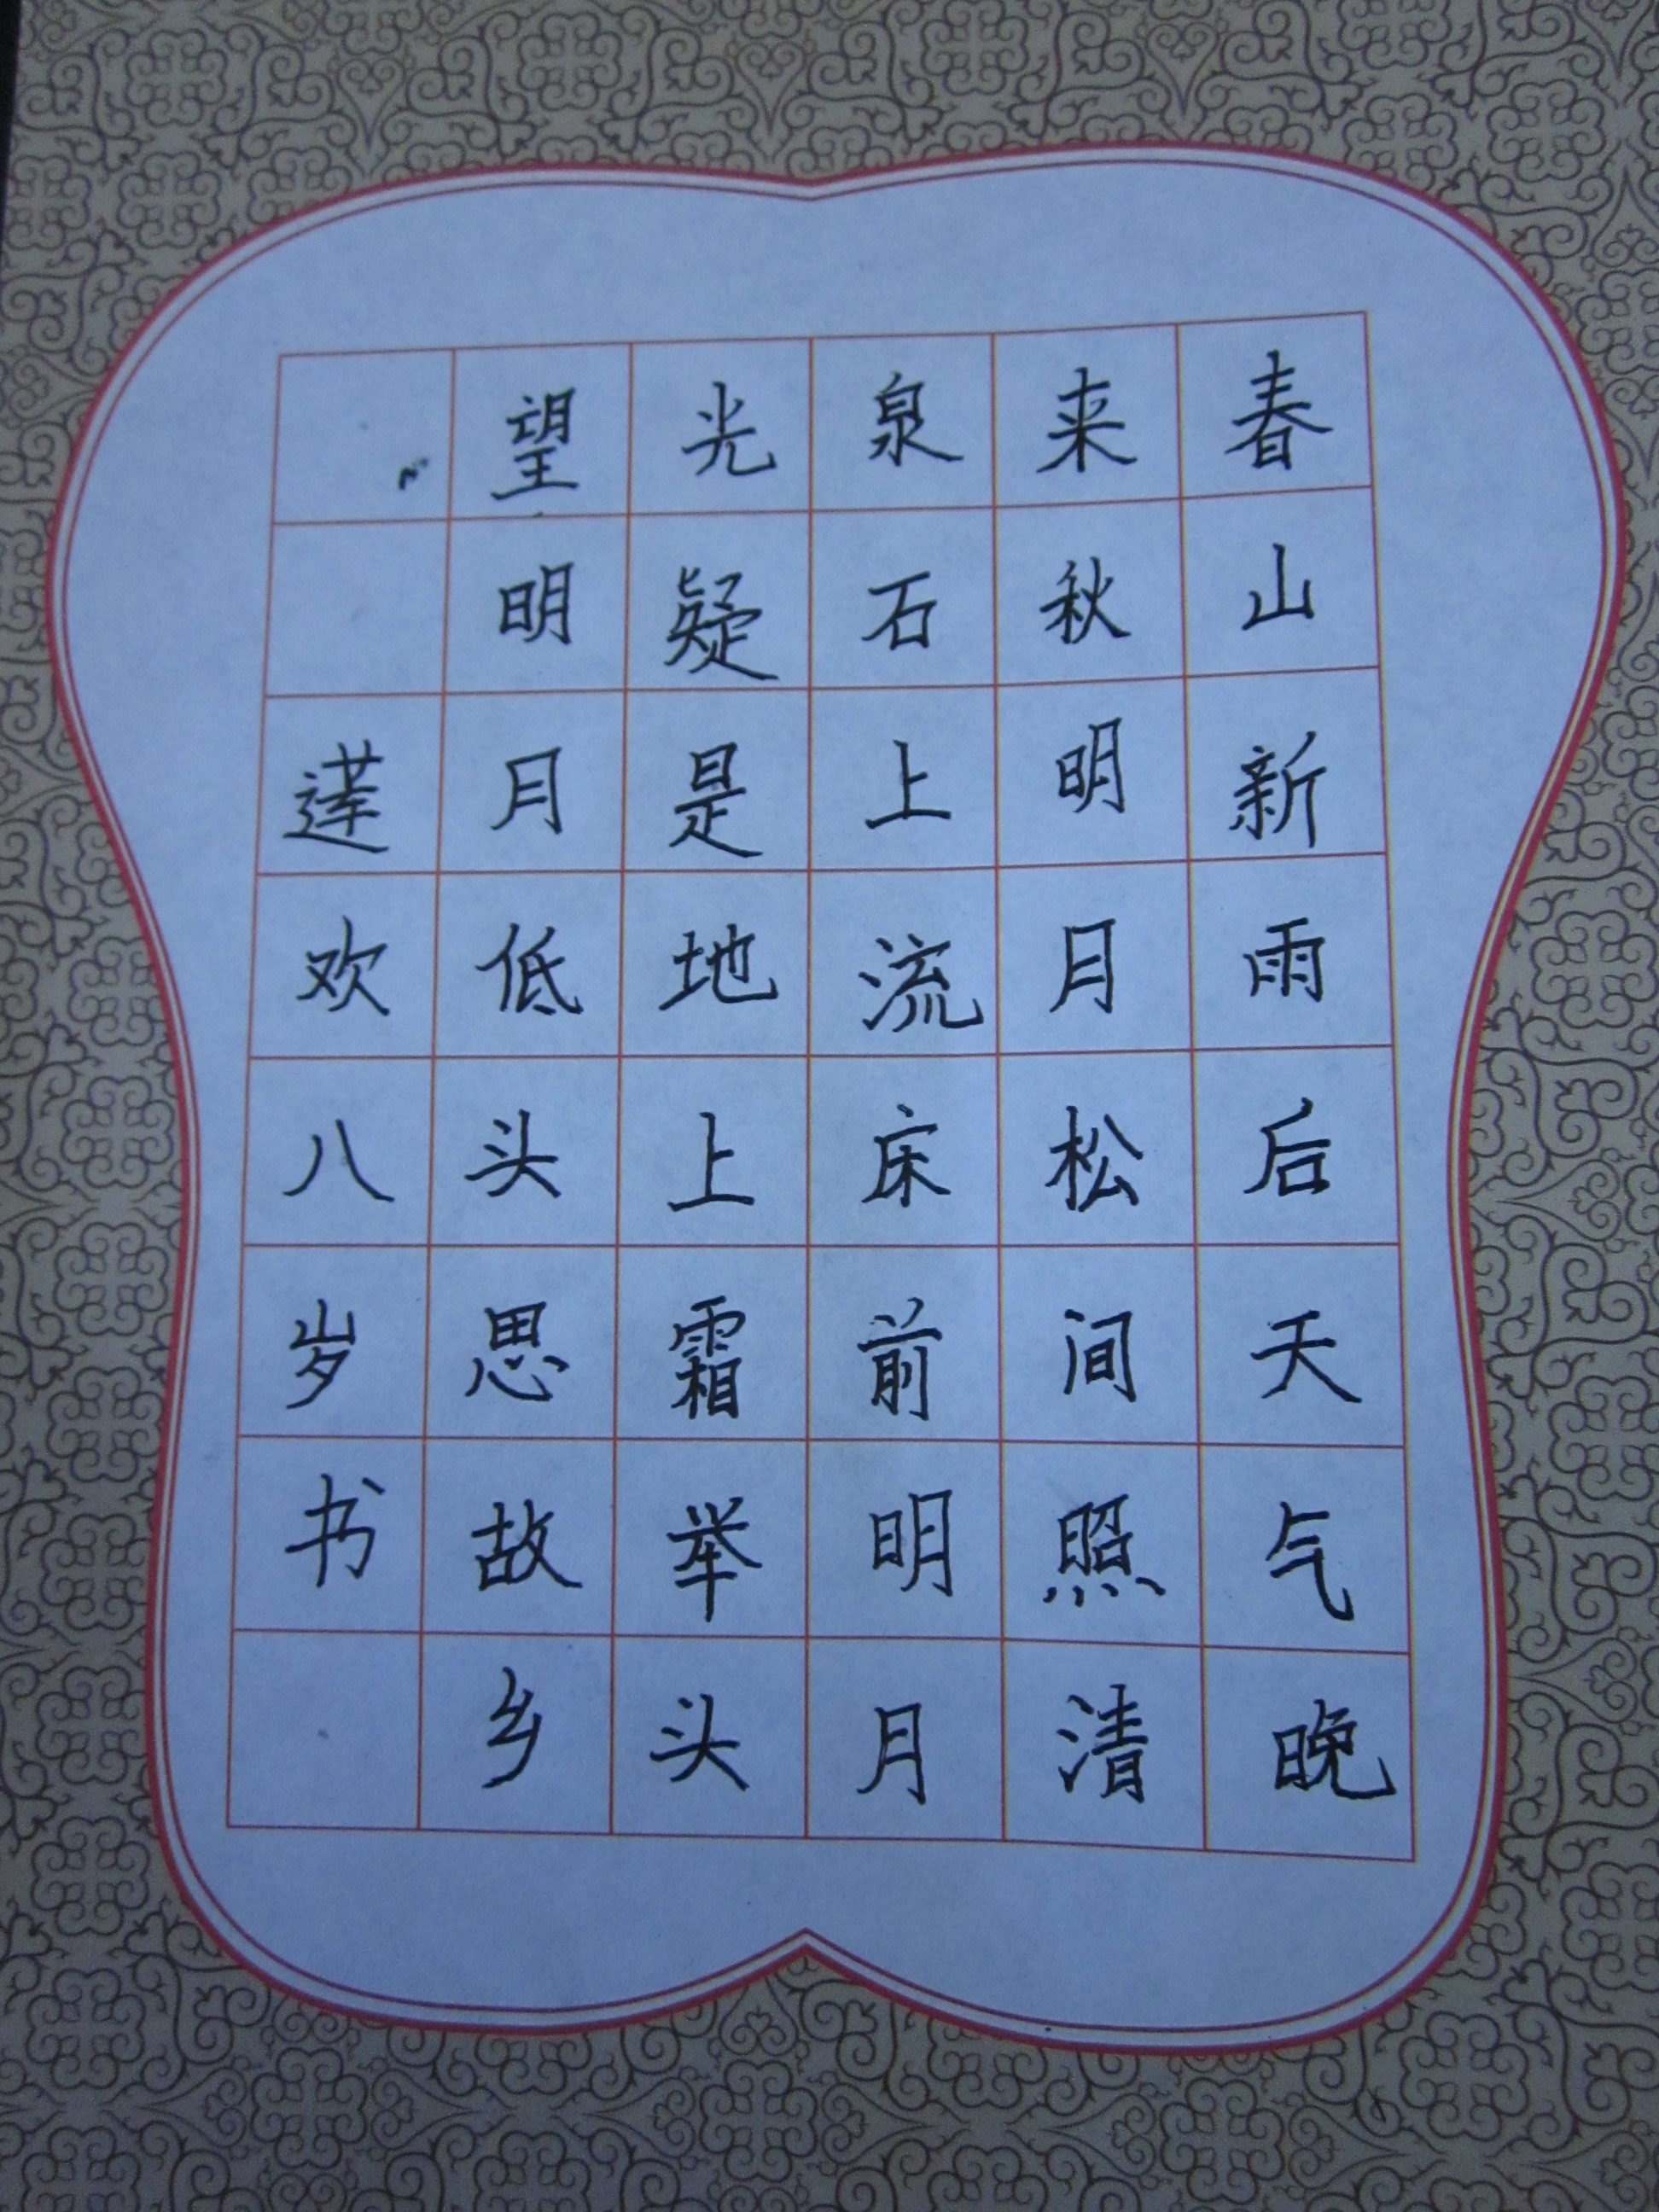 春山新雨后天气晚
来秋明月松间照清
泉石上流床前明月
光疑是地上霜举头
望明月低头思故乡
莲欢八岁书